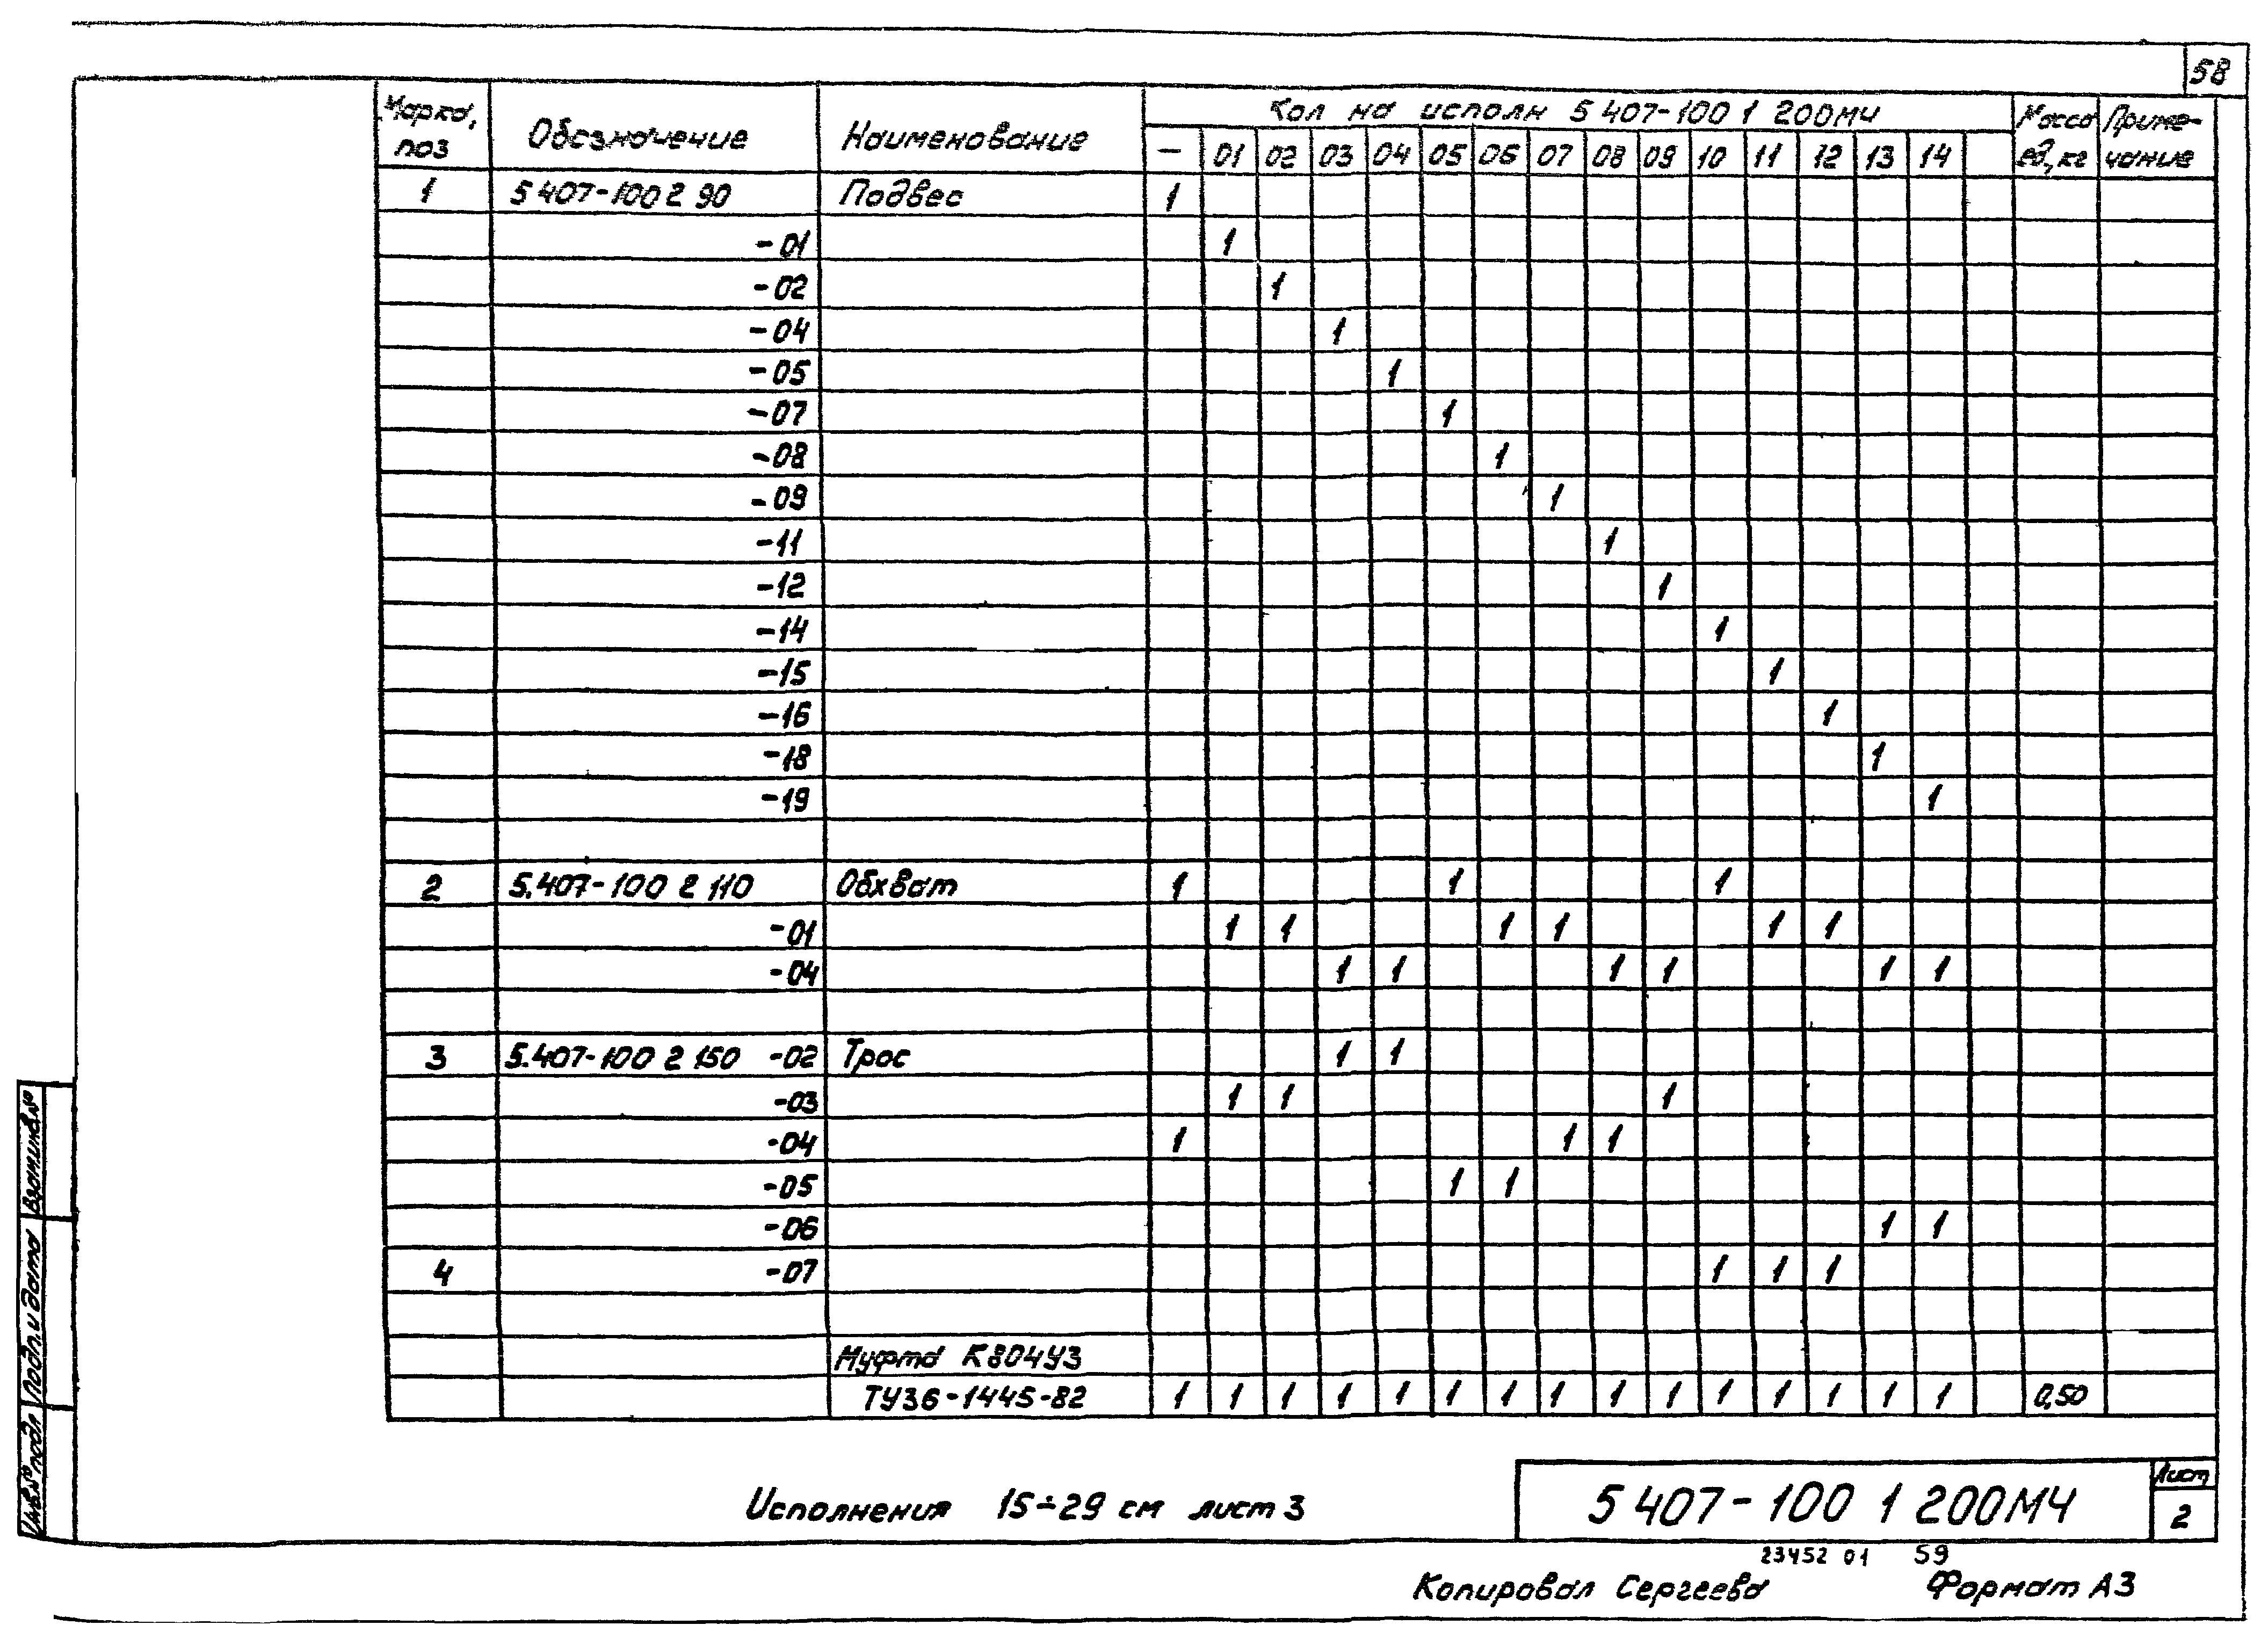 58
Марка, поз Обозначение Наименование Кол на исполн 5 407-100 1 200МЧ Масса ед, кг Приме-чание
— 01 02 03 04 05 06 07 08 09 10 11 12 13 14
1 5 407-100 2 90 Подвес 1
-01 1
-02 1
-04 1
-05 1
-07 1
-08 1
-09 1
-11 1
-12 1
-14 1
-15 1
-16 1
-18 1
-19 1
2 5.407-100 2 110 Обхват 1 1 1
-01 1 1 1 1 1 1
-04 1 1 1 1 1 1
3 5.407-100 2 150 -02 Трос 1 1
-03 1 1 1
-04 1 1 1
-05 1 1
-06 1 1
4 -07 1 1 1
Муфта К804У3
ТУ36-1445-82 1 1 1 1 1 1 1 1 1 1 1 1 1 1 1 0,50
Исполнения 15÷29 см лист 3
5 407-100 1 200МЧ
Лист
2
23452 01 59
Копировал Сергеева Формат А3
Инв.№ подл
Подп. и дата
Взам инв.№